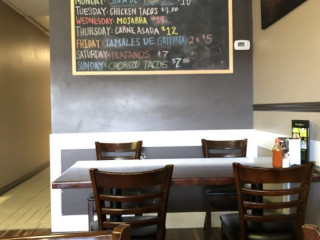 MONDAY: SOPA DE
TUESDAY: CHICKEN TACOS $1.00
WEDNESDAY: MOJARRA
THURSDAY: CARNE ASADA $12
FRIDAY: TAMALES DE GALLINA 2 x $5
SATURDAY: PLATANOS $7
SUNDAY: CHORIZO TACOS $7.00